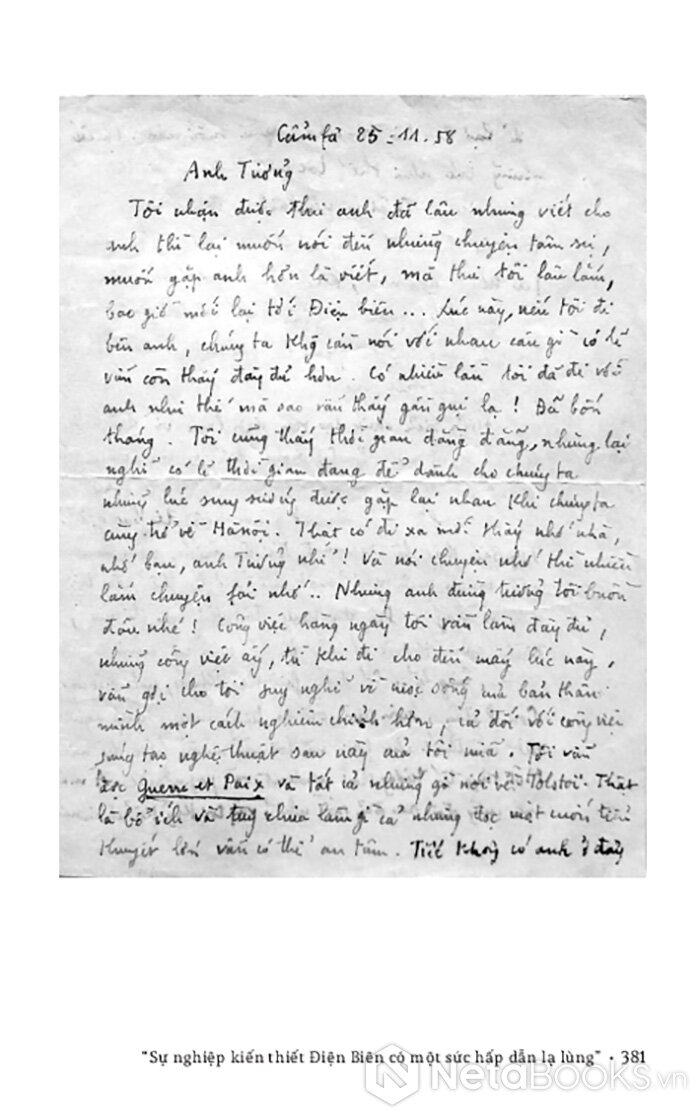 Cẩmfả 25-11-58
Anh Tưởng
Tôi nhận được thư anh đã lâu nhưng viết cho
anh thì lại muốn nói đến những chuyện tâm sự,
muốn gặp anh hơn là viết, mà thư tôi lâu lắm,
bao giờ mới lại tới Điện biên... Lúc này, nếu tôi đi
bên anh, chúng ta khg cần nói với nhau câu gì có lẽ
vẫn còn thấy đầy đủ hơn. Có nhiều lần tôi đã đi với
anh như thế mà sao vẫn thấy gần gụi lạ! Đã bốn
tháng! Tôi cũng thấy thời gian đằng đẵng, nhưng lại
nghĩ có lẽ thời gian đang để dành cho chúng ta
những lúc sung sướng được gặp lại nhau khi chúng ta
cùng trở về Hànôi. Thật có đi xa mới thấy nhớ nhà,
nhớ bạn, anh Tưởng nhỉ! Và nói chuyện nhớ thì nhiều
lắm chuyện fải nhớ.. Nhưng anh đừng tưởng tôi buồn
đâu nhé! Công việc hàng ngày tôi vẫn làm đầy đủ,
những công việc ấy, từ khi đi cho đến mấy lúc này,
vẫn gợi cho tôi suy nghĩ về cuộc sống mà bản thân
mình một cách nghiêm chỉnh hơn, cả đối với công việc
sáng tạo nghệ thuật sau này của tôi nữa. Tôi vẫn
đọc Guerre et Paix và tất cả những gì nói về Tolstoi. Thật
là bổ ích và tuy chưa làm gì cả nhưng đọc một cuốn tiểu
thuyết lớn vẫn có thể an tâm. Tiếc không có anh ở đây
"Sự nghiệp kiến thiết Điện Biên có một sức hấp dẫn lạ lùng" • 381
NetaBooks.vn